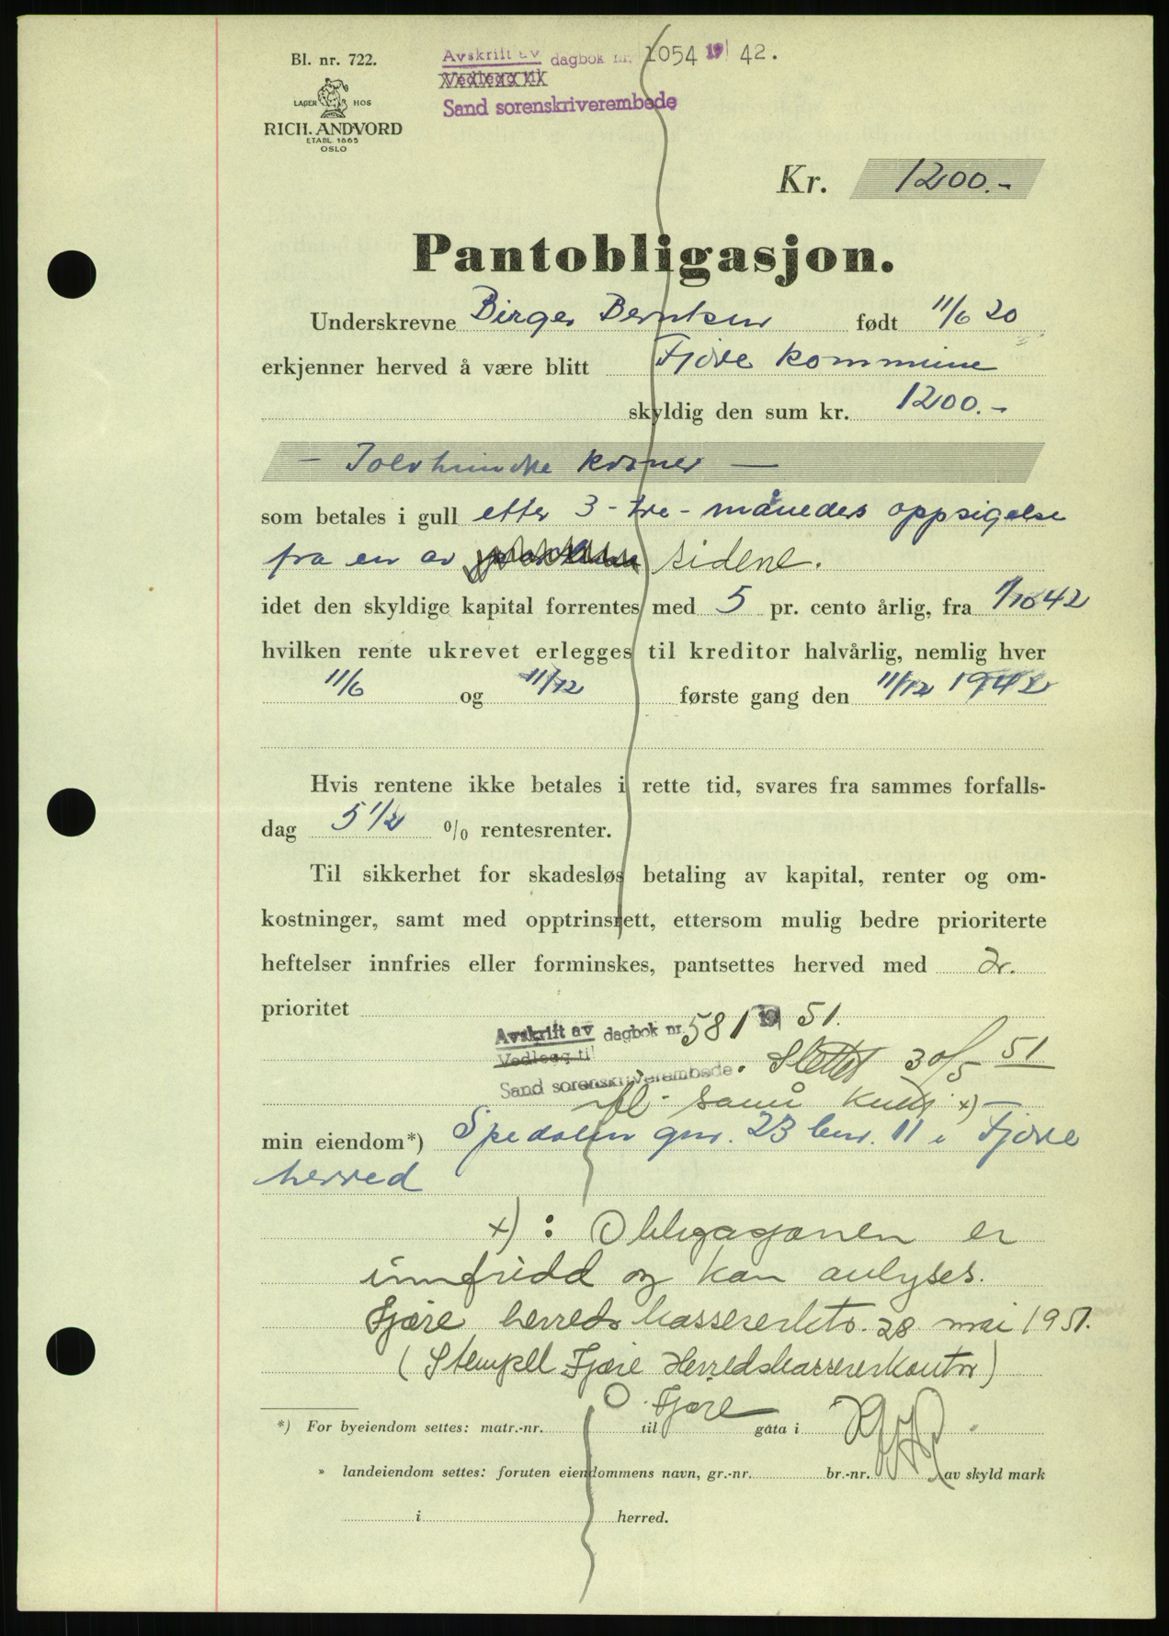 Bl. nr. 722.
LAGER HOS
RICH. ANDVORD
ETABL. 1865
OSLO
Avskrift av dagbok nr. 1054 19 42.
Vedlegg til
Sand sorenskriverembede
Kr. 1200.-
Pantobligasjon.
Underskrevne Birger Berntsen født 11/6 20
erkjenner herved å være blitt Fjære kommune
skyldig den sum kr. 1200.-
- Tolvhundre kroner -
som betales i gull etter 3 - tre - måneders oppsigelse
fra en av sidene.
idet den skyldige kapital forrentes med 5 pr. cento årlig, fra 1/10 42
hvilken rente ukrevet erlegges til kreditor halvårlig, nemlig hver
11/6 og 11/12 første gang den 11/12 1942
Hvis rentene ikke betales i rette tid, svares fra sammes forfalls-
dag 5 1/2 % rentesrenter.
Til sikkerhet for skadesløs betaling av kapital, renter og om-
kostninger, samt med opptrinsrett, ettersom mulig bedre prioriterte
heftelser innfries eller forminskes, pantsettes herved med 2r.
prioritet
Avskrift av dagbok nr. 581 19 51.
Vedlegg til
Sand sorenskriverembede. Slettet 30/5 51
x)
min eiendom*) Spedalen gnr. 23 bnr. 11 i Fjære
herred
x) : Obligasjonen er
innfridd og kan avlyses.
Fjære herredskassererkto. 28 mai 1951.
(Stempel Fjære Herredskassererkontor)
Fjære
*) For byeiendom settes: matr.-nr. til gata i
» landeiendom settes: foruten eiendommens navn, gr.-nr. br.-nr. av skyld mark
i herred.